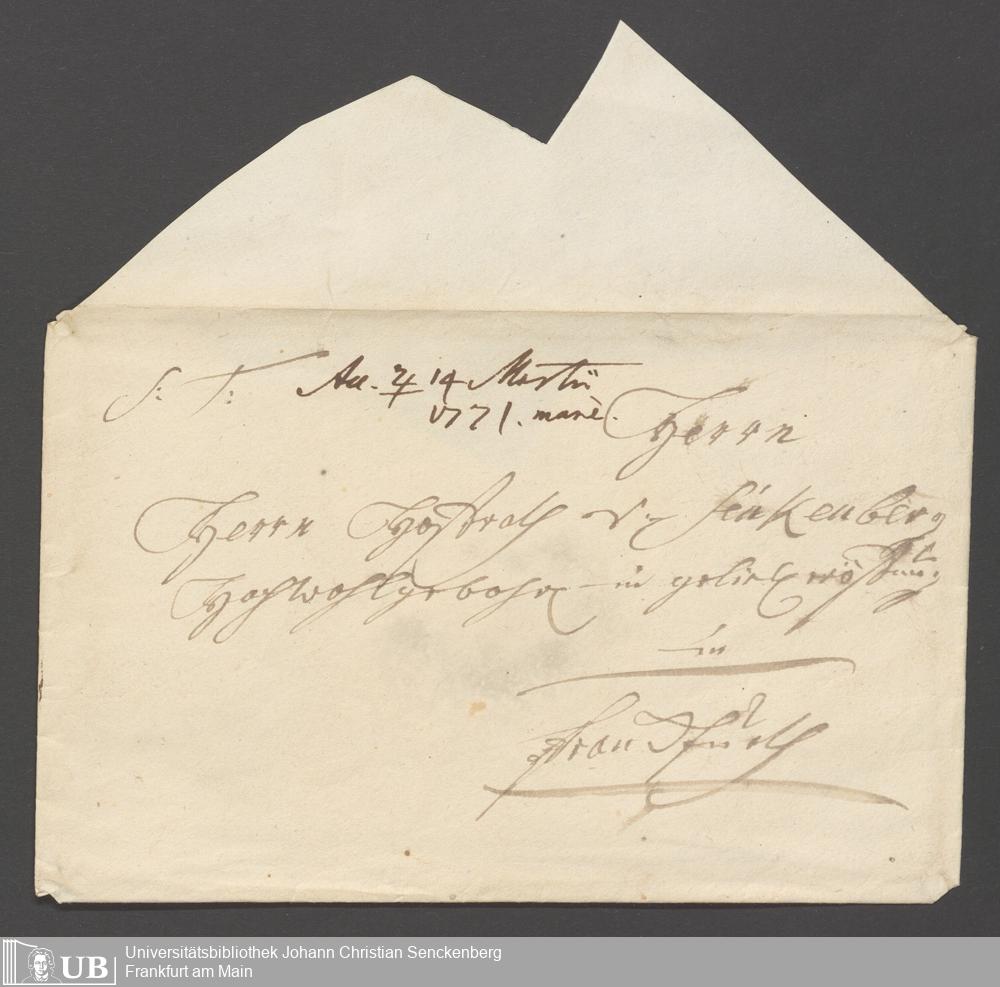 S: T: Acc. ♃ 14 Martii
1771. manè.
Herrn
Herrn Hoffrath v: Sinkenberg
Hochwohlgebohr in
in
Franckfurth
UB Universitätsbibliothek Johann Christian Senckenberg
Frankfurt am Main